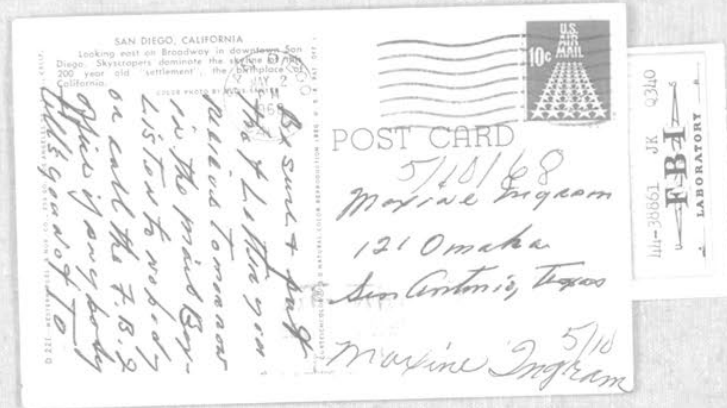 SAN DIEGO, CALIFORNIA
Looking east on Broadway in downtown San
Diego. Skyscrapers dominate the skyline of this
200 year old "settlement", the birthplace of
California.
COLOR PHOTO BY
MAY 2
PM
1968
U.S.
AIR
MAIL
10c
POST CARD
Be sure & put
that Letter you
recieve Tomorrow
in the mail Box-
Listen to nobody
or call the F.B.I
office if anybody
tells you not To
NATURAL COLOR REPRODUCTION
5/10/68
Maxine Ingram
121 Omaha
San Antonio, Texas
5/10
Maxine Ingram
44-38861 JK Q340
FBI
LABORATORY